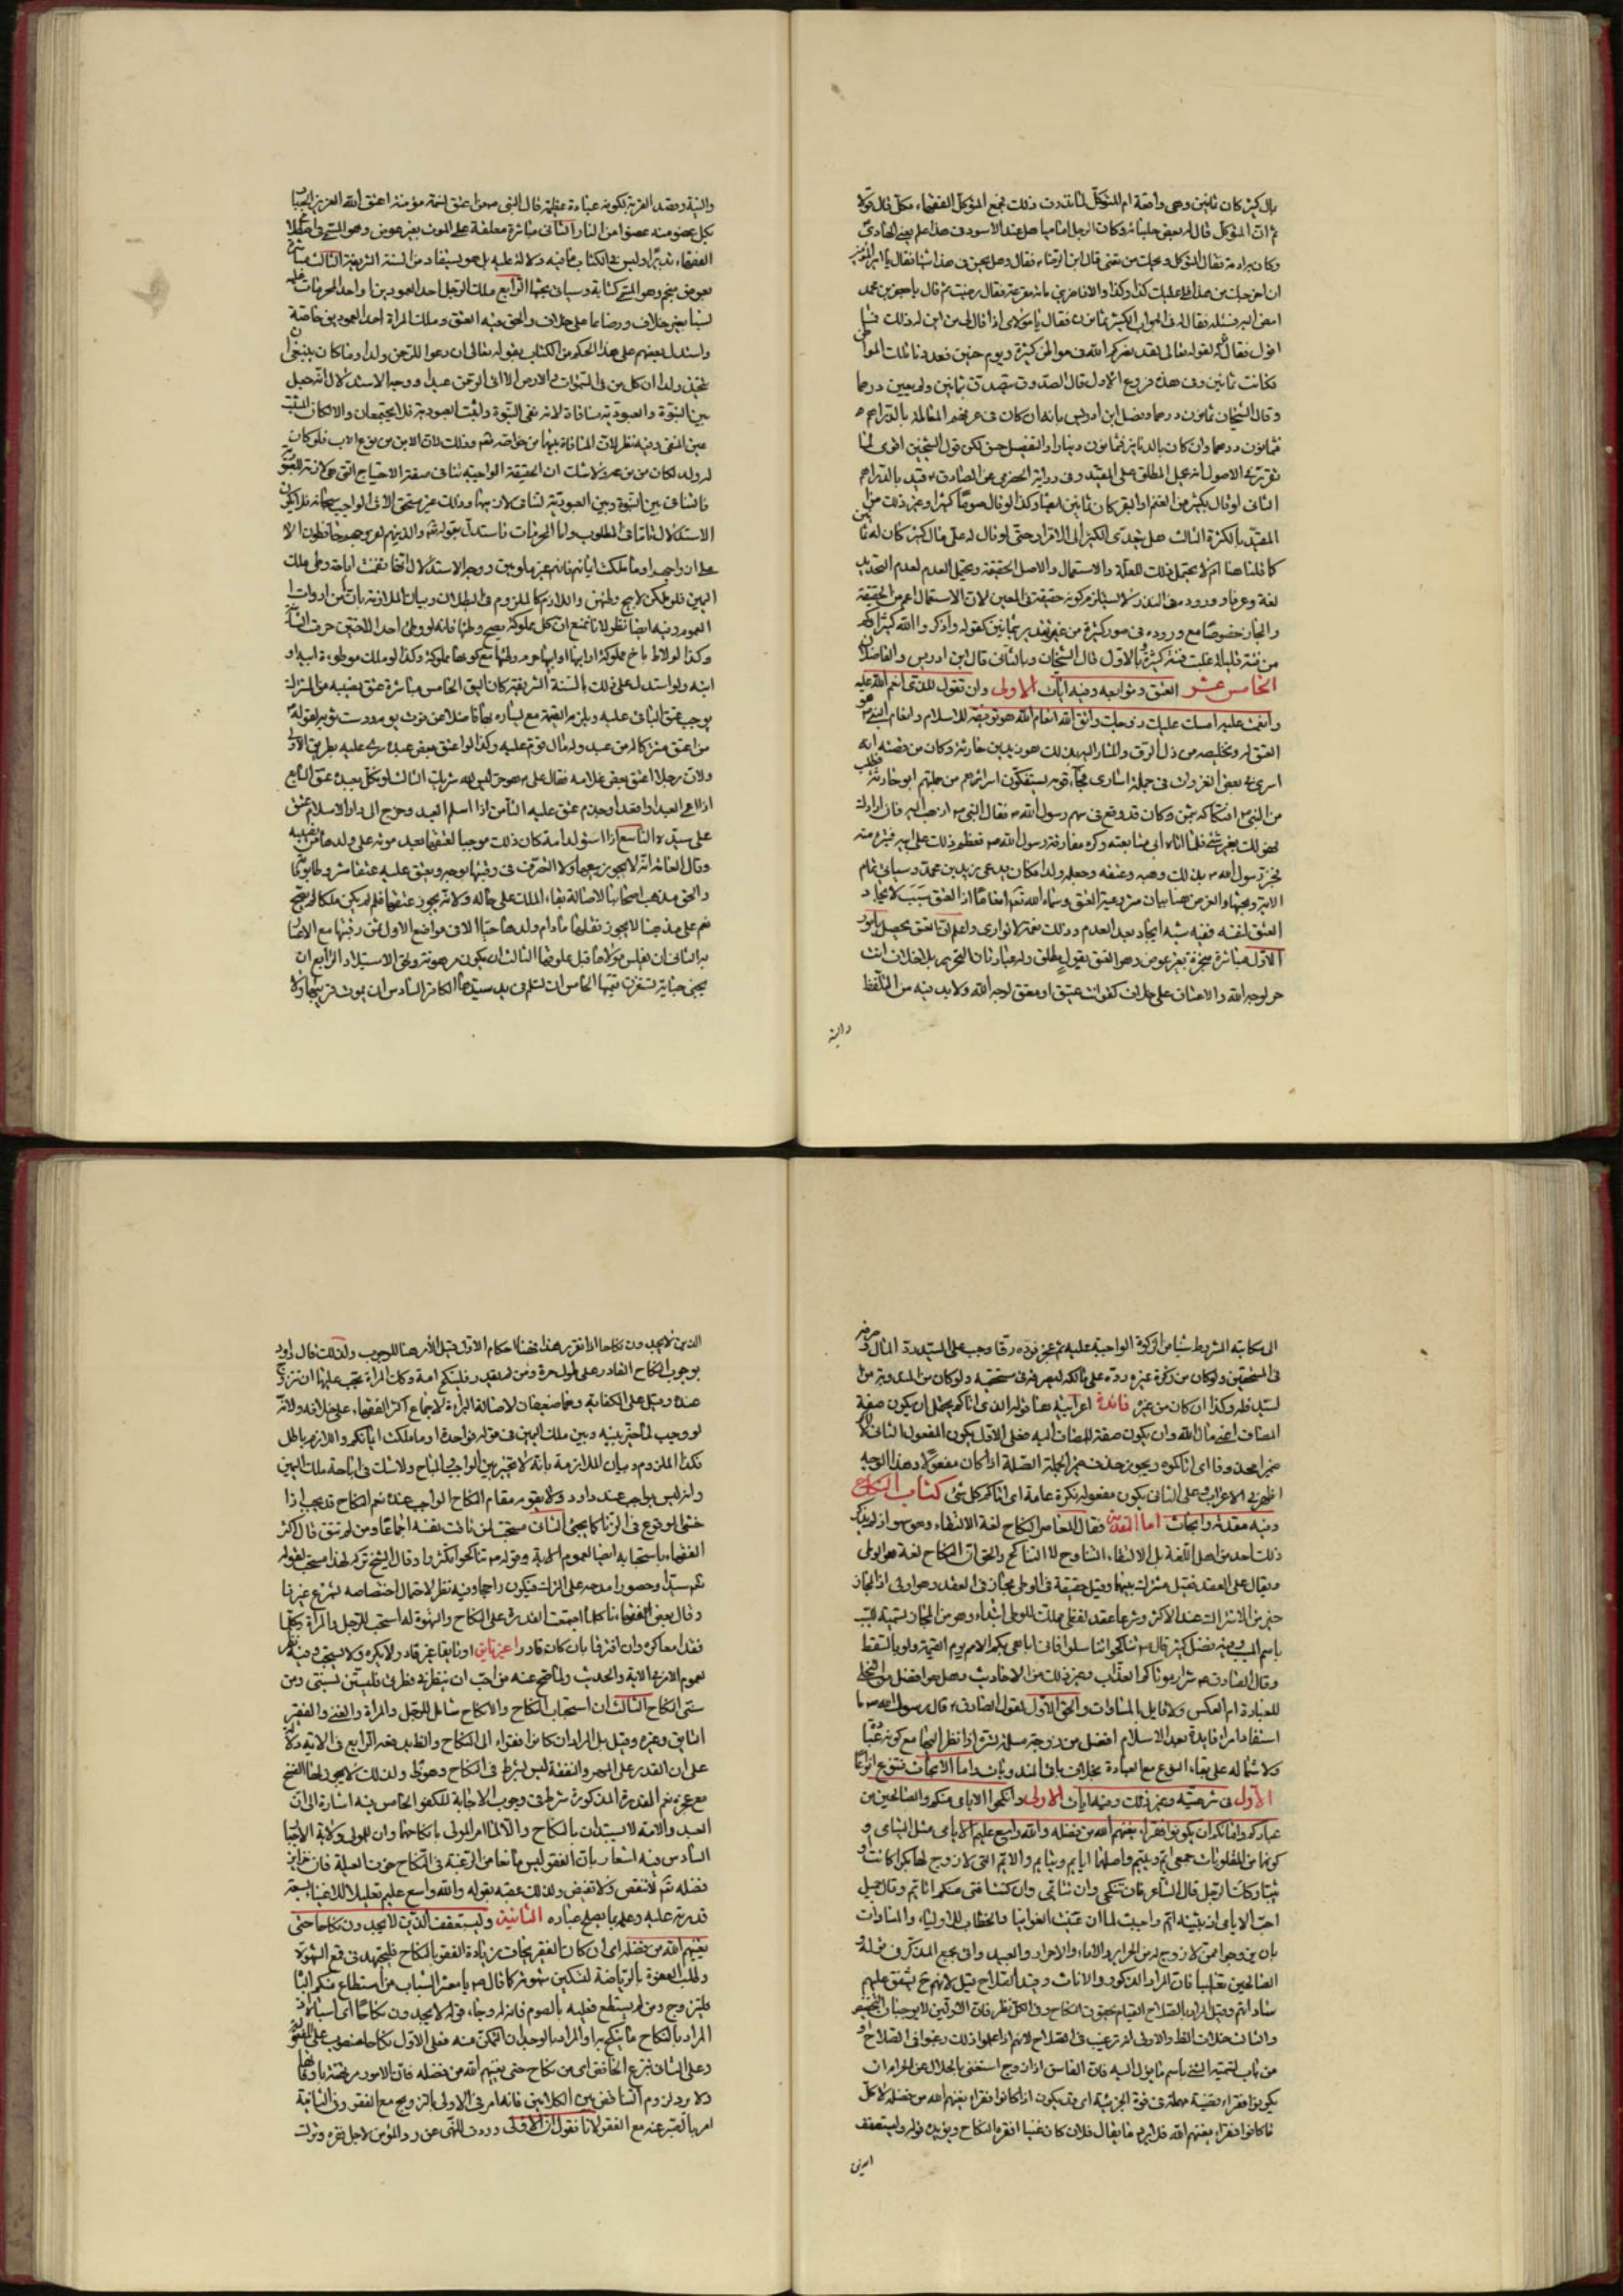 بمال كثير كان ثمانين وهي واقعة ام المتوكل لما نذرت ذلك فجمع المتوكل الفقهاء فكل قال قولا
ثم ان المتوكل قال له بعض جلسائه وكان الرجل اماميا هل عند الاسود في هذا علم يعني الهادي
ان اخرجك من هذا فلي عليك كذا وكذا والا فاضربني مائة مقرعة فقال رضيت ثم قال يا جعفر بن محمود
امض اليه فسله فقال له في الجواب الكثير ثمانون فقال يا مولاي اذا قال لي من اين له ذلك فما
اقول فقال لقوله تعالى لقد نصركم الله في مواطن كثيرة ويوم حنين فعددنا تلك المواطن
فكانت ثمانين وفي هذه فروع الاول قال الصدوق يتصدق بثمانين ولم يعين درهما
وقال الشيخان ثمانون درهما وفصل ابن ادريس بانه ان كان في عرفهم المعاملة بالدراهم
فثمانون درهما وان كان بالدنانير فثمانون دينارا والتفصيل حسن لكن قول الشيخين اقوى لما
تقرر في الاصول انه يحمل المطلق على المقيد وفي رواية الحضرمي عن الصادق قيد بالدراهم
الثاني لو قال بكثير من الغنم او البقر كان ثمانين ايضا وكذا لو قال صوما كثيرا وغير ذلك من
المقيد بالكثرة الثالث هل يتعدى الكثير الى الاقرار حتى لو قال له علي مال كثير كان له ثمانين
كما قلنا هنا ام لا يحتمل ذلك للعلة والاستعمال والاصل الحقيقة ويحتمل العدم لعدم التحديد
لغة وعرفا وورود في النذر لا يستلزم كونه حقيقة في المعين لان الاستعمال اعم من الحقيقة
والمجاز خصوصا مع وروده في صور كثيرة من غير تقدير بثمانين كقوله واذكروا الله كثيرا وكم
من فئة قليلة غلبت فئة كثيرة بالاول قال الشيخان وبالثاني قال ابن ادريس والفاضلان
الخامس عشر العتق وتوابعه وفيه آيات الاولى واذ تقول للذي انعم الله عليه
وانعمت عليه امسك عليك زوجك واتق الله انعام الله هو توفيقه للاسلام وانعام النبي هو
العتق له وتخليصه من ذل الرق والمشار اليه بذلك هو زيد بن حارثة وكان من قصته انه
اسر في بعض الغزوات في جملة اسارى فجاء قومه يستفكون اسرائهم من جملتهم ابو حارثة فطلب
من النبي افتكاكه بثمن وكان قد وقع في سهم رسول الله فقال النبي اذهب اليه فان ارادك
فهو لك بغير شيء فلما اتاه ابى متابعته وكره مفارقة رسول الله فعظم ذلك على ابيه
رسول الله بذلك وهبه وعتقه وجعله ولدا فكان يدعى زيد بن محمد وسياتي تمام
الآية وبحثها والغرض هنا بيان مشروعية العتق وسماه الله تعالى انعاما اذ العتق سبب لايجاد
العتق لنفسه ففيه شبه ايجاد بعد العدم وذلك نعمة لا توازى واعلم ان العتق يحصل بامور
الاول مباشرة منجزة بغير عوض وهو العتق بقول مطلق وله عبارتان التحرير بلا خلاف انت
حر لوجه الله والاعتاق على خلاف كقوله انت عتيق او معتق لوجه الله ولا بد فيه من التلفظ
والنية
والنية وقصد القربة لكونه عبادة عظيمة قال النبي من اعتق نسمة مؤمنة اعتق الله العزيز الجبار
بكل عضو منه عضوا من النار الثاني مباشرة معلقة على الموت بغير عوض وهو المسمى في اصطلاح
الفقهاء تدبيرا وليس في الكتاب ما فيه دلالة عليه بل هو يستفاد من السنة الشريفة الثالث مباشرة
بعوض منجم وهو المسمى كتابة وسياتي بحثها الرابع ملك الرجل احد العمودين او احد المحرمات عليه
نسبا بغير خلاف ورضاعا على خلاف والحق فيه العتق وملك المراة احد العمودين خاصة
واستدل بعضهم على هذا الحكم من الكتاب بقوله تعالى ان دعوا للرحمن ولدا وما كان ينبغي ان
يتخذ ولدا ان كل من في السموات والارض الا آتي الرحمن عبدا ووجه الاستدلال انه جعل
بين البنوة والعبودية منافاة لانه نفى البنوة واثبت العبودية فلا يجتمعان والا لكان المثبت
عين المنفي وفيه نظر لان المنافاة بينهما من خواصه تعالى وذلك لان الابن من نوع الاب فلو كان
له ولد لكان من نوعه ولا شك ان الحقيقة الواجبية تنافي صفة الاحتياج التي هي لازمة للعبودية
فالتنافي بين البنوة وبين العبودية لتنافي لازميهما وذلك غير متحقق الا في الواجب سبحانه فلا يكون
الاستدلال تاما في المطلوب واما المحرمات فاستدل بقوله تعالى والذين هم لفروجهم حافظون الا
على ازواجهم او ما ملكت ايمانهم فانهم غير ملومين ووجه الاستدلال انها تضمنت اباحة وطي ملك
اليمين فلو ملكن لابيح وطيهن واللازم كالملزوم في البطلان وبيان الملازمة بان ما من ادوات
العموم وفيه ايضا نظر لانا نمنع ان كل مملوكة يصح وطيها فانه لو وطي احد الاختين حرمت الثانية
وكذا لو لاط باخ مملوكة او ابنها او ابيها حرم وطيها مع كونها مملوكة وكذا لو ملك موطوءة ابيه او
ابنه ولو استدل على ذلك بالسنة الشريفة كان اليق الخامس مباشرة عتق نصيبه من المشترك
يوجب عتق الباقي عليه ويلزمه القيمة مع يساره بها فاضلا عن قوت يومه ودست ثوبه لقوله
من اعتق شركا له من عبد وله مال قوم عليه وكذا لو اعتق بعض عبده سرى عليه بطريق الاولى
ولان رجلا اعتق بعض غلامه فقال علي هو حر ليس لله شريك السادس لو نكل بعبده عتق السابع
اذا عمي العبد او اقعد او جذم عتق عليه الثامن اذا اسلم العبد وخرج الى دار الاسلام عتق
على سيده التاسع اذا استولد امة كان ذلك موجبا لعتقها بعد موته على ولدها من نصيبه
وقال العامة انه لا يجوز بيعها ولا التصرف في رقبتها بوجه
والحق مذهب اصحابنا لاصالة بقاء الملك على حاله ولانه يجوز عتقها فلو لم يكن ملكا لم يصح
نعم على مذهبنا لا يجوز نقلها ما دام ولدها حيا الا في مواضع الاول ثمن رقبتها مع الاعسار
به الثاني ان يفلس مولاها قبل علوقها الثالث ان يكون مرهونة ولحق الاستيلاد الرابع ان
يجني جناية تستغرق قيمتها الخامس ان تسلم في يد سيدها الكافر السادس ان يموت قريبها ولا
الى مكاتبه المشروط شيئا من الزكوة الواجبة عليه ثم عجز فرده رقا وجب على السيد رد المال وصرفه
في المستحقين ولو كان من زكوة غيره رده على مالكه ليصرفه في مستحقيه ولو كان من المندوبة من
السيد فله وكذا ان كان من غيره فائدة اعرابية هنا قوله الذي اتاكم يحتمل ان يكون صفة
المضاف اعني مال الله وان يكون صفة للمضاف اليه فعلى الاول يكون المفعول الثاني لاتى
ضميرا محذوفا اي اتاكموه ويجوز حذف ضمير الجملة الصلة اذا كان مفعولا وهذا الوجه
اظهر في الاعراب وعلى الثاني يكون مفعوله نكرة عامة اي اتاكم كل شيء كتاب النكاح
وفيه مقدمة وابحاث اما المقدمة فقال المعاصر النكاح لغة الالتقاء وهو سهو اذ لم يذكر
ذلك احد من اهل اللغة بل الالتقاء التناوح لا التناكح والحق ان النكاح لغة هو الوطي
ويقال على العقد فقيل مشترك بينهما وقيل حقيقة في الوطي مجاز في العقد وهو اولى اذ المجاز
خير من الاشتراك عند الاكثر وشرعا عقد لفظي مملك للوطي ابتداء وهو من المجاز تسمية للسبب
باسم المسبب وفيه فضل كثير قال تناكحوا تناسلوا فاني اباهي بكم الامم يوم القيمة ولو بالسقط
وقال الصادق شرار موتاكم العزاب وغير ذلك من الاحاديث وهل هو افضل من التخلي
للعبادة ام العكس ولا قايل بالمساوات والحق الاول لقول الصادق قال رسول الله ما
استفاد امرء فايدة بعد الاسلام افضل من زوجة مسلمة تسره اذا نظر اليها مع كونه
ولاشتماله على بقاء النوع مع العبادة بخلاف باقي المندوبات واما الابحاث فتتنوع انواعا
الاول في شرعيته وغير ذلك وفيه ايات الاولى وانكحوا الايامى منكم والصالحين من
عبادكم وامائكم ان يكونوا فقراء يغنهم الله من فضله والله واسع عليم الايامى مثل اليتامى
كونهما من المقلوبات جمعي ايم ويتيم واصلهما ايايم ويتايم والايم التي لا زوج لها بكرا كانت او
ثيبا وكذا الرجل قال الشاعر فان تنكحي وان تتايمي وان كنت افتى منكم اتايم وقال جميل
احب الايامى اذ بثينة ايم واحببت لما ان غنيت الغوانيا والخطاب للاولياء والسادات
بان يزوجوا من لا زوج له من الحرائر والاماء والاحرار والعبيد واتى بجمع المذكر في قوله
الصالحين تغليبا فان المراد الذكور والاناث وقيد الصلاح قيل لانهم يشفق عليهم
ساداتهم وقيل المراد بالصلاح القيام بحقوق النكاح وفي الكل نظر فان الاولين لا يوجبان التخصيص
والثالث خلاف الظاهر والاولى انه ترغيب في الصلاح لانهم اذا علموا ذلك رغبوا في الصلاح او
من باب تسمية الشيء باسم ما يؤل اليه فان الفاسق اذا زوج استغنى بالحلال عن الحرام ان
يكونوا فقراء قضية مهملة في قوة الجزئية اي قد يكون اذا كانوا فقراء يغنهم الله من فضله لا كل
ما كانوا فقراء يغنهم الله فلا يرد ما يقال فلان كان غنيا افقره النكاح ويؤيده قوله وليستعفف
الذين
الذين لا يجدون نكاحا اذا تقرر هذا فهنا احكام الاول قيل الامر هنا للوجوب ولذلك قال داود
بوجوب النكاح القادر على طول حرة ومن لم يقدر فلينكح امة وكذا المراة يجب عليها ان تزوج
وقيل على الكفاية وهما ضعيفان لاصالة البراءة لاجماع اكثر الفقهاء على خلافه ولانه
لو وجب لما خير بينه وبين ملك اليمين في قوله فواحدة او ما ملكت ايمانكم واللازم باطل
فكذا الملزوم وبيان الملازمة بانه لا تخيير بين الواجب والمباح ولا شك في اباحة ملك اليمين
وانه ليس بواجب عند داود ولا يقوم مقام النكاح الواجب عنده نعم النكاح قد يجب اذا
خشي الوقوع في الزنا كما يجيء الثاني مستحب لمن تاقت نفسه اجماعا ومن لم تتق قال اكثر
الفقهاء باستحبابه ايضا لعموم الاية وقوله تناكحوا تكثروا وقال الشيخ تركه لهذا مستحب لقوله
تعالى سيدا وحصورا مدحه على الترك فيكون راجحا وفيه نظر لاحتمال اختصاصه بشرع غيرنا
وقال بعض الفقهاء كلما اجتمعت القدرة على النكاح والشهوة له استحب للرجل والمراة وكلما
فقدا معا كره وان افترقا بان كان قادرا غير تايق او تايقا غير قادر لا يكره ولا يستحب وفيه نظر
لعموم الامر في الاية والحديث ولما صح عنه من احب ان يتبع فطرتي فليستن بسنتي ومن
سنتي النكاح الثالث ان استحباب النكاح والانكاح شامل للرجل والمراة والغني والفقير
التايق وغيره وقيل بل المراد ان كانوا فقراء الى النكاح الرابع في الاية دلالة
على ان القدرة على المهر والنفقة ليس بشرط في النكاح وهو ظاهر ولذلك لا يجوز لها الفسخ
مع عجزه نعم القدرة المذكورة شرط في وجوب الاجابة للكفو الخامس فيه اشارة الى ان
العبد والامة لا يستبدان بالنكاح والا لما امر المولى بانكاحهما وان للمولى ولاية الاجبار
السادس فيه اشعار بان الفقر ليس مانعا من الرغبة في النكاح خوف العيلة فان خزاين
فضله تعالى لا تنقص ولا تغيض ولذلك عقبه بقوله والله واسع عليم تعليلا للاغناء بسعة
قدرته عليه وعلمه بما يصلح عباده الثانية وليستعفف الذين لا يجدون نكاحا حتى
يغنيهم الله من فضله اي ان كان الفقير يخاف من زيادة الفقر بالنكاح فليجتهد في قمع الشهوة
وطلب العفة بالرياضة لتسكين شهوته كما قال يا معشر الشباب من استطاع منكم الباه
فليتزوج ومن لم يستطع فعليه بالصوم فانه له وجاء قوله لا يجدون نكاحا اي اسبابه او
المراد بالنكاح ما ينكح به او المراد بالوجدان التمكن منه فعلى الاول نكاحا منصوب على المفعولية
وعلى الثاني بنزع الخافض اي من نكاح حتى يغنيهم الله من فضله فان الامور مرتهنة باوقاتها
ولا يرد لزوم التناقض بين الكلامين فانه امر في الاولى بالتزويج مع الفقر وفي الثانية
امر بالصبر عنه مع الفقر لانا نقول ان الاولى وردت للنهي عن رد المؤمن لاجل فقره وترك